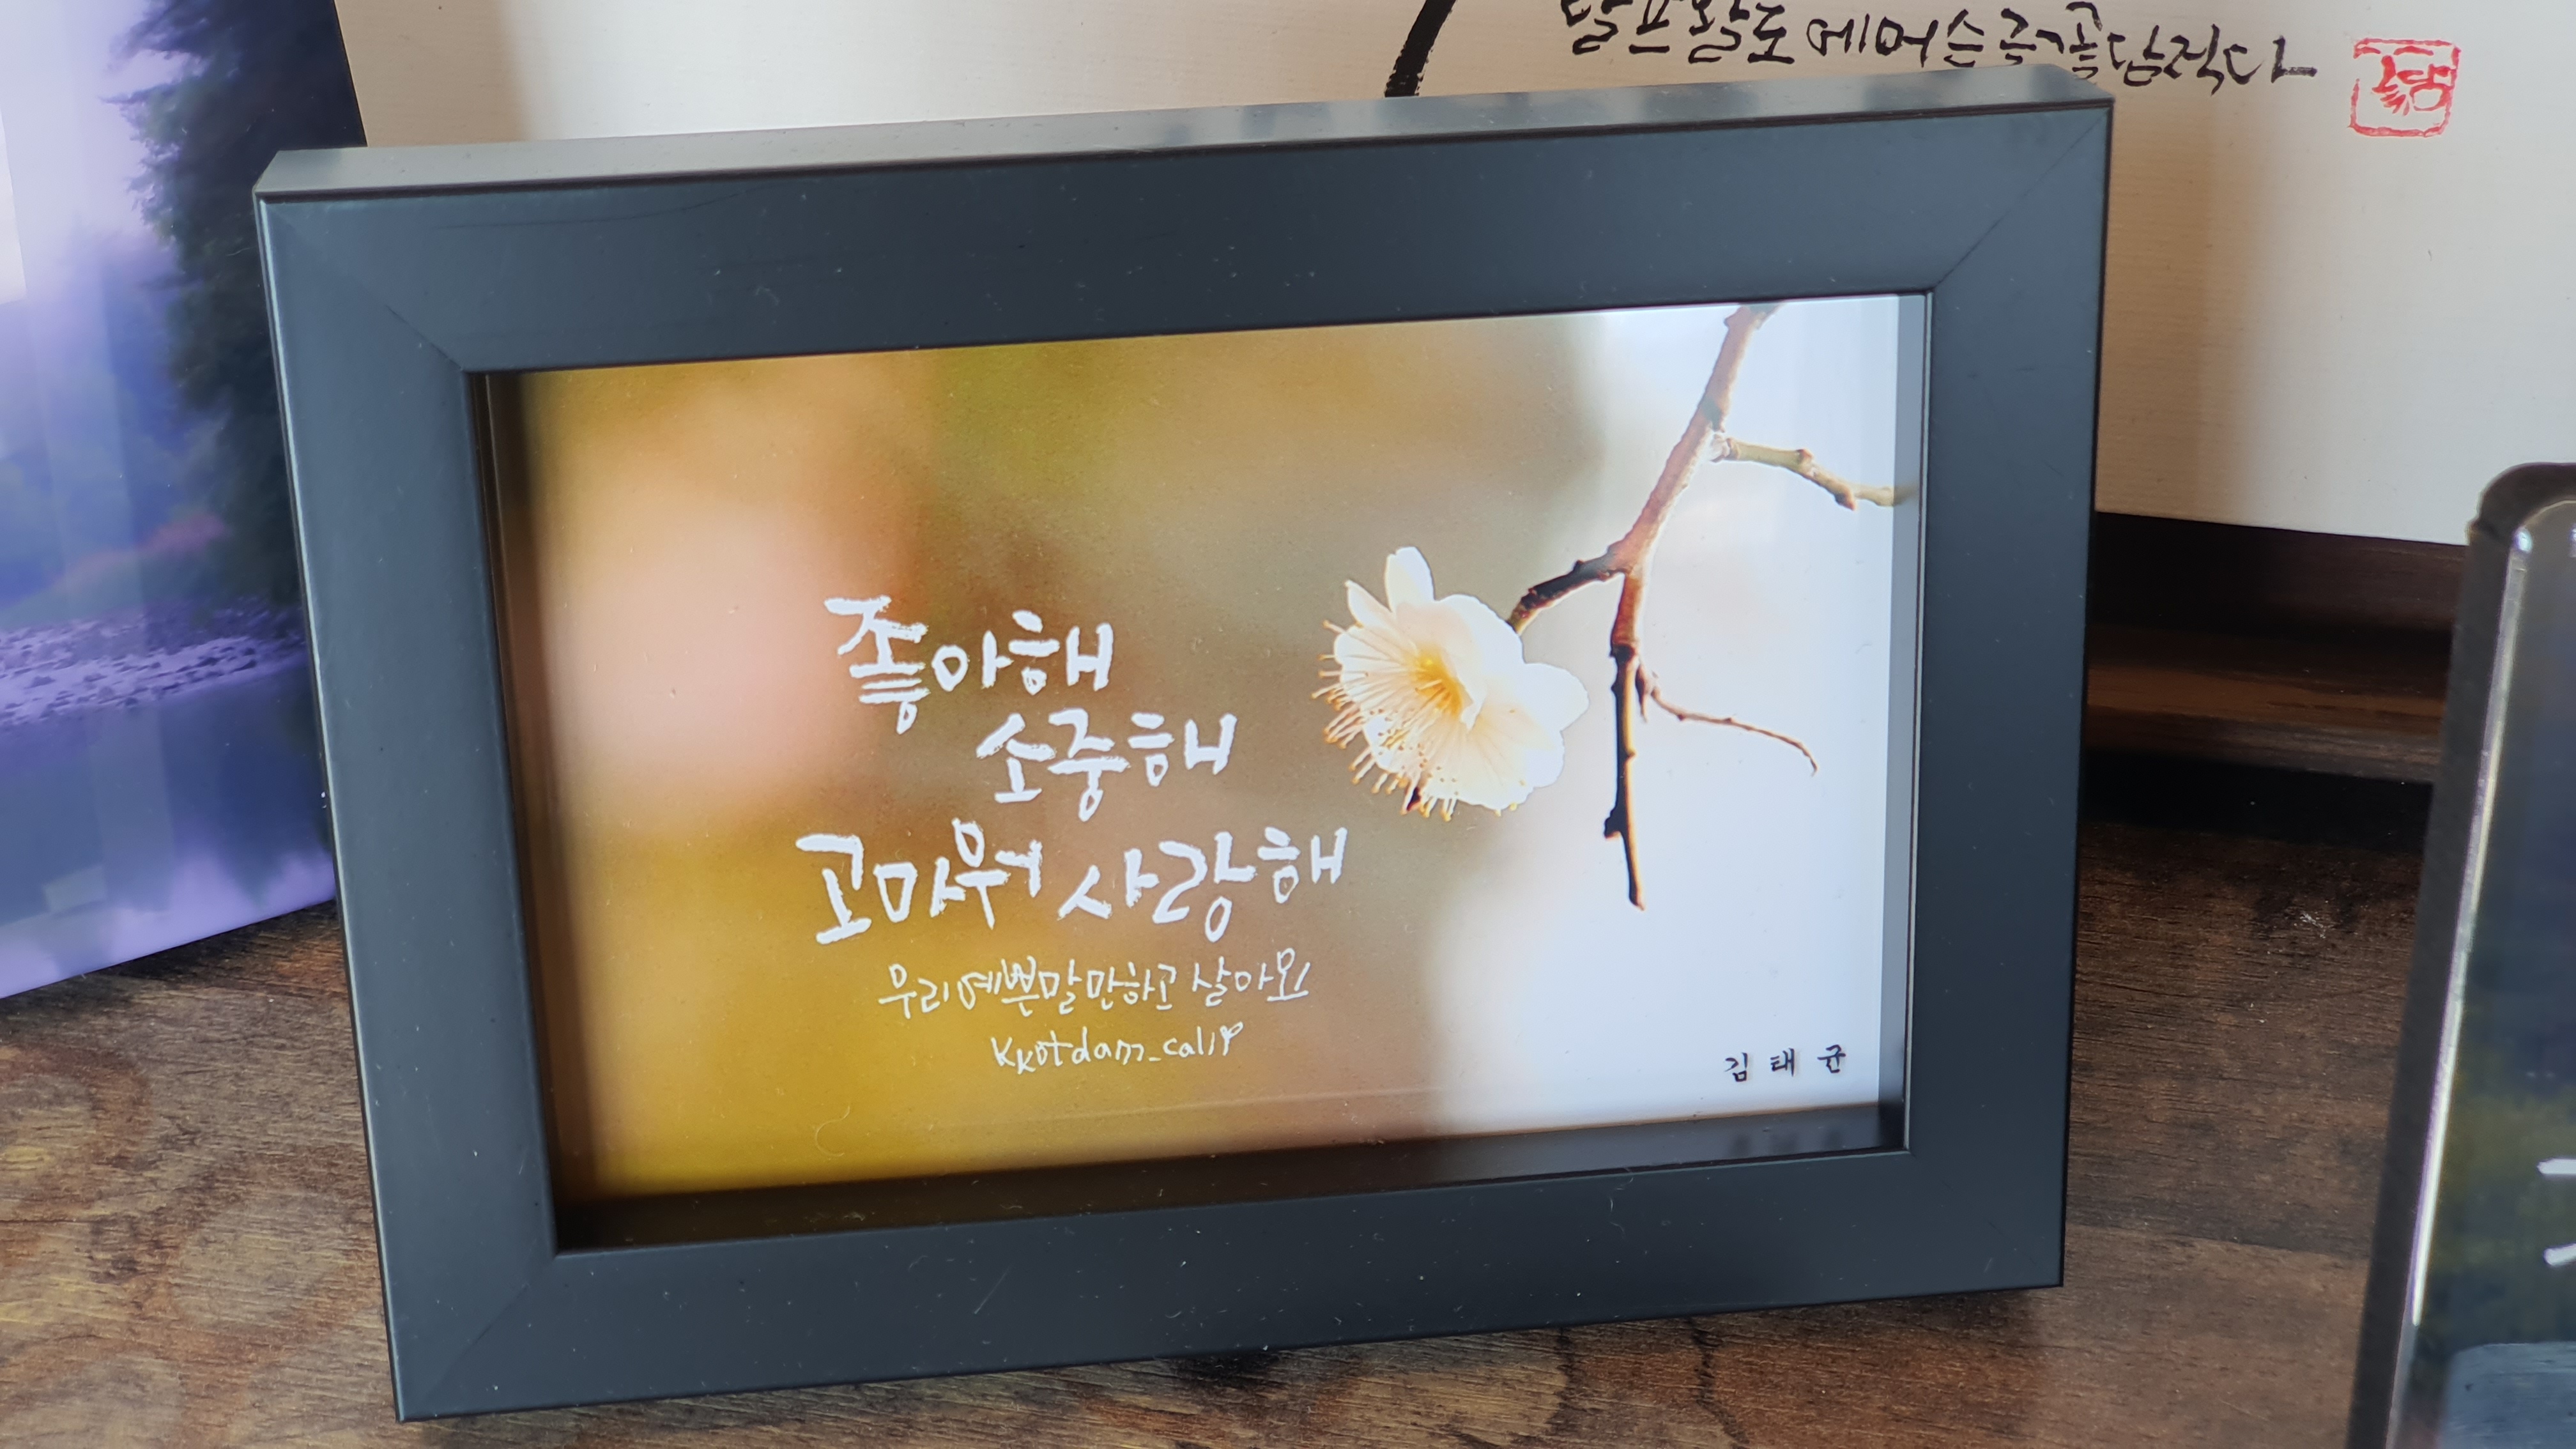 랄프왈도에머슨글꽃담적다
좋아해
소중해
고마워 사랑해
우리예쁜말만하고 살아요
kkotdam_cali
김태균